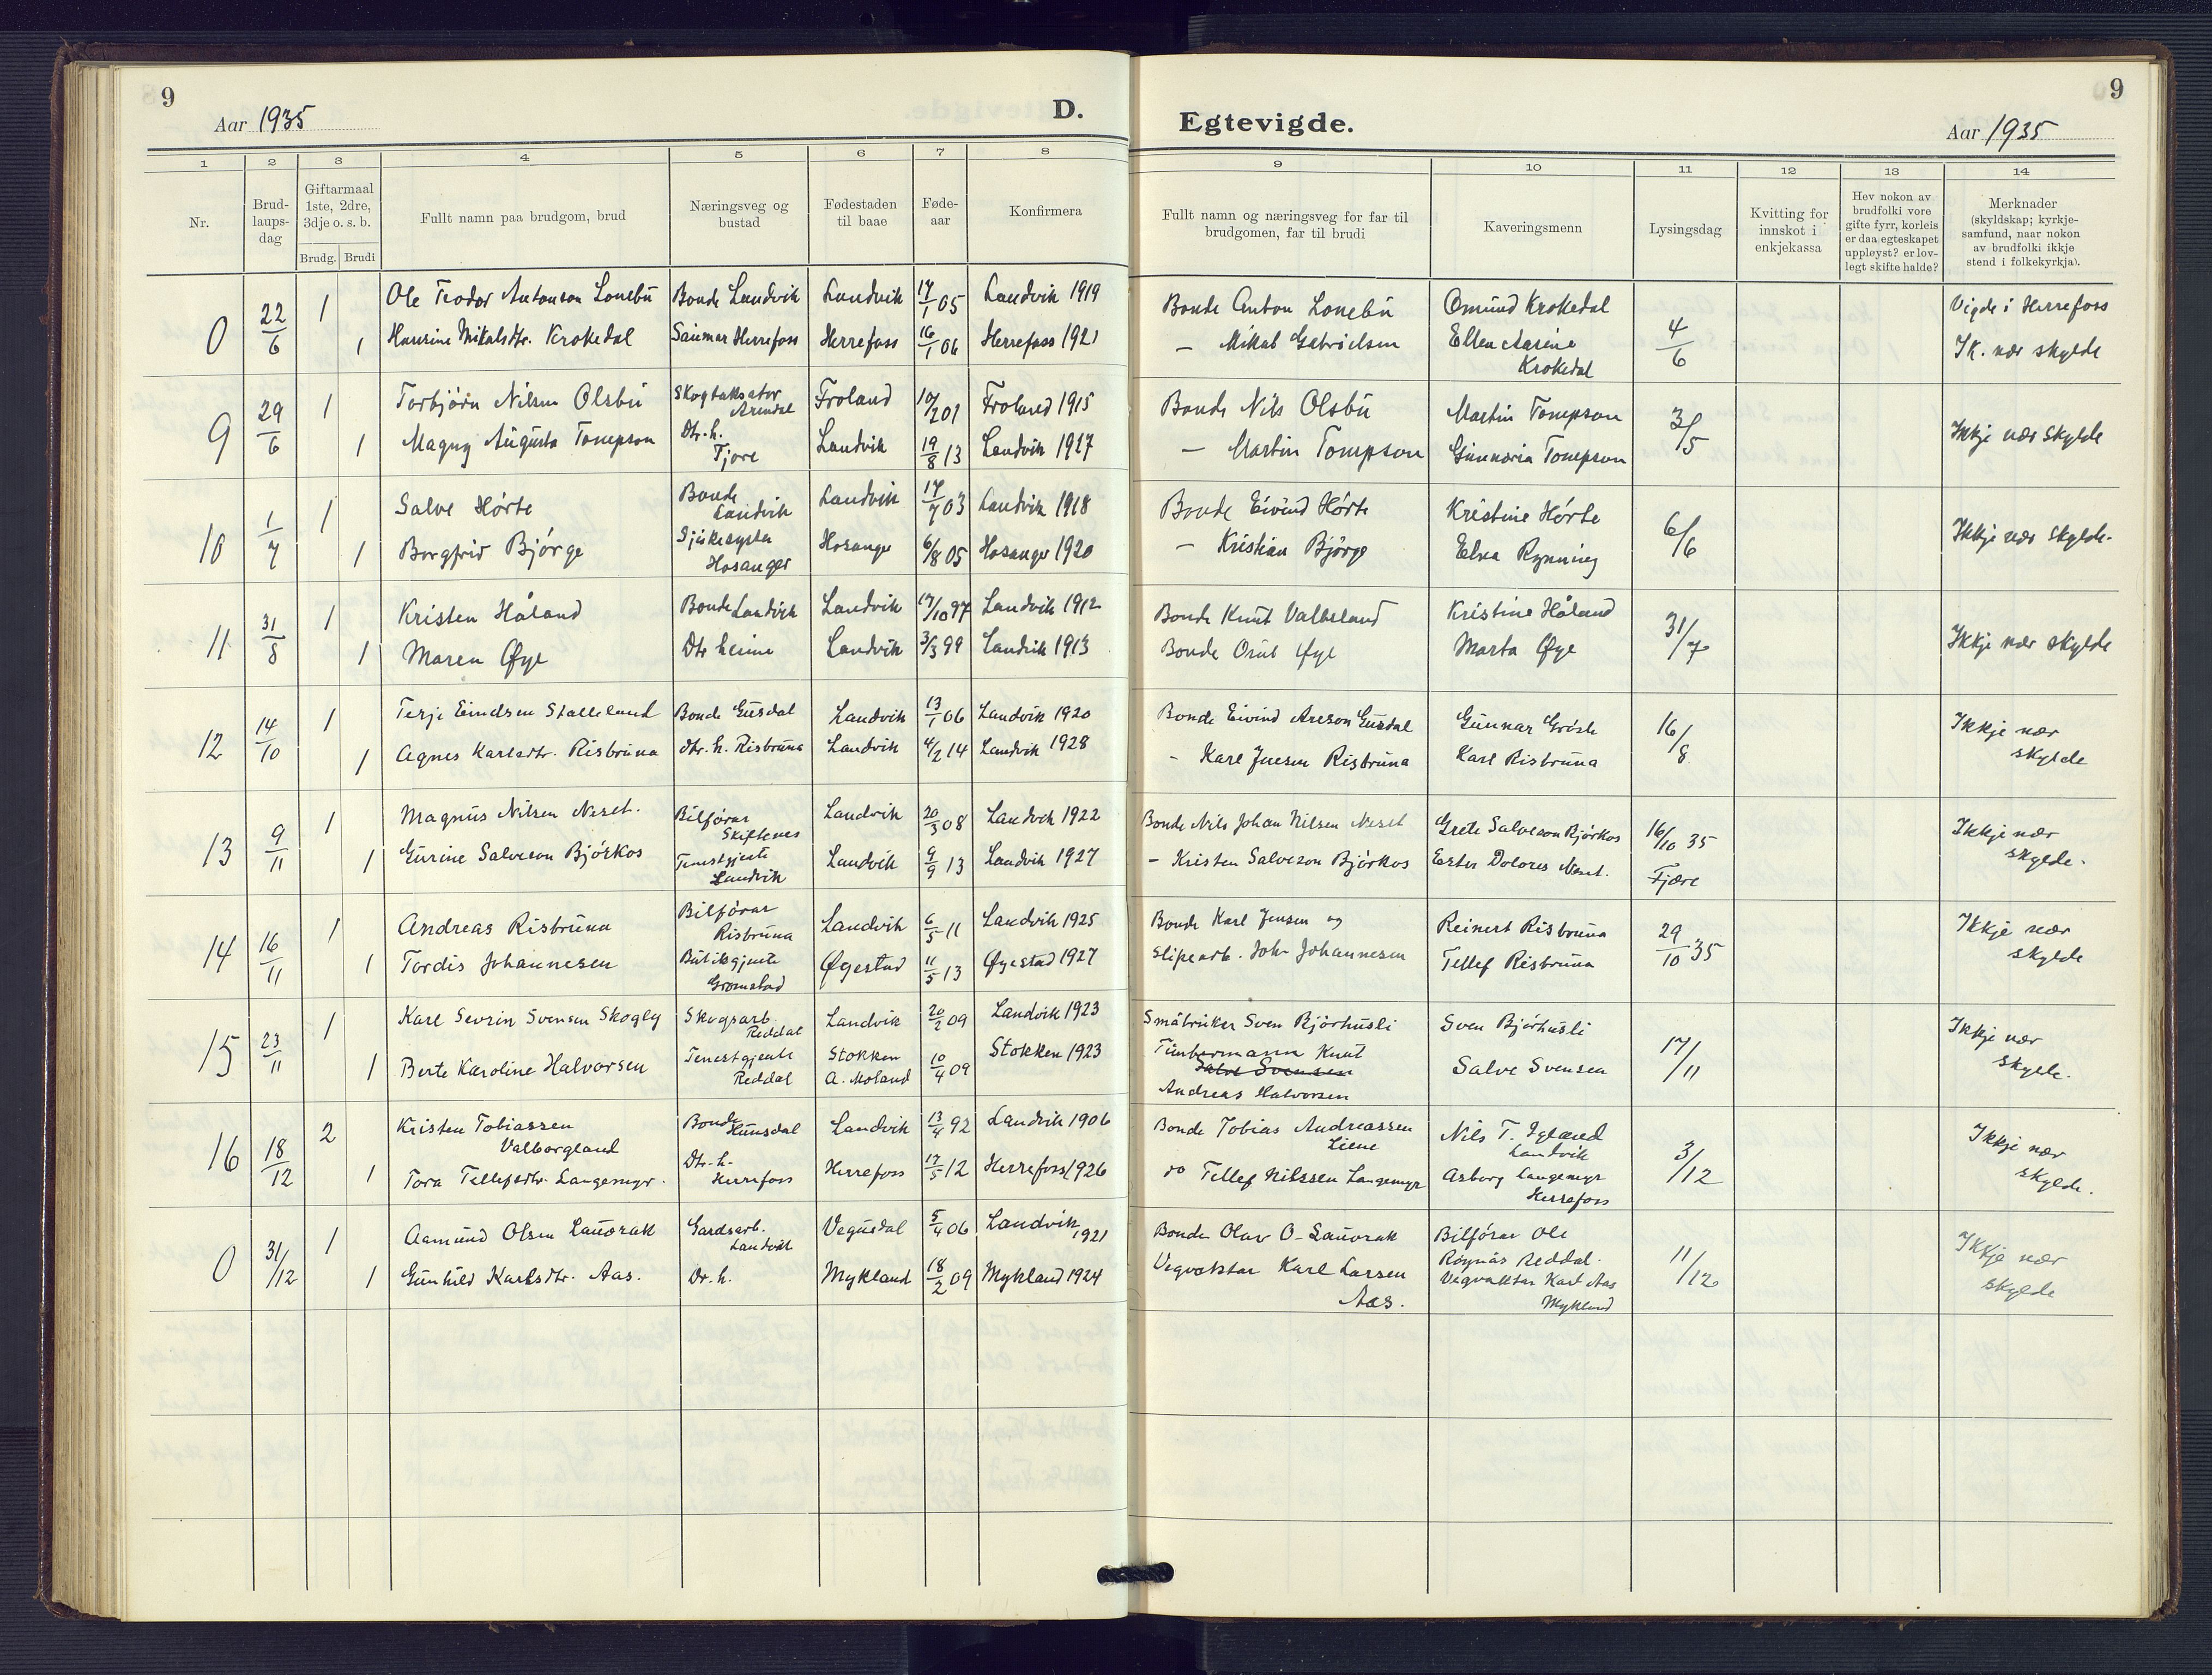 9
Aar 1935
D.
Egtevigde.
Aar 1935
9
1 2 3 4 5 6 7 8 9 10 11 12 13 14
Nr.
Brud-
laups-
dag
Giftarmaal
1ste, 2dre,
3dje o. s. b.
Brudg. Brudi
Fullt namn paa brudgom, brud
Næringsveg og
bustad
Fødestaden
til baae
Føde-
aar
Konfirmera
Fullt namn og næringsveg for far til
brudgomen, far til brudi
Kaveringsmenn
Lysingsdag
Kvitting for
innskot i
enkjekassa
Hev nokon av
brudfolki vore
gifte fyrr, korleis
er daa egteskapet
uppløyst? er lov-
legt skifte halde?
Merknader
(skyldskap; kyrkje-
samfund, naar nokon
av brudfolki ikkje
stend i folkekyrkja).
0 22/6 1 Ole Teodor Antonson Lonebu Bonde Landvik Landvik 17/1 05 Landvik 1919 Bonde Anton Lonebu Omund Krokedal 4/6 Vigde i Herrefoss
1 Haurine Mikalsdtr. Krokedal Saumar Herrefoss Herrefoss 16/1 06 Herrefoss 1921 — Mikal Gabrielsen Ellen Aasine Ik. nær skylde
Krokedal
9 29/6 1 Torbjörn Nilsen Olsbu Skogtaksator Arendal Froland 10/2 01 Froland 1915 Bonde Nils Olsbu Martin Tompson 3/5 Ikkje nær skylde
1 Magny Augusta Tompson Dtr. h. Fjore Landvik 19/8 13 Landvik 1927 — Martin Tompson Gunvaria Tompson
10 1/7 1 Salve Hörte Bonde Landvik Landvik 17/7 03 Landvik 1918 Bonde Eivind Hörte Kristine Hörte 6/6 Ikkje nær skylde.
1 Borgfrid Björge Sjukesyster Hosanger Hosanger 6/8 05 Hosanger 1920 — Kristian Björge Elna Rynning
11 31/8 1 Kristen Håland Bonde Landvik Landvik 17/10 97 Landvik 1912 Bonde Knut Valbsland Kristine Håland 31/7 Ikkje nær skylde
1 Maren Øye Dtr heime Landvik 3/3 99 Landvik 1913 Bonde Øye Marta Øye
12 14/10 1 Terje Eivindsen Stalleland Bonde Gusdal Landvik 13/1 06 Landvik 1920 Bonde Eivind Areson Gusdal Gunnar 16/8 Ikkje nær
1 Agnes Karlsdtr. Risbruna dtr. h. Risbruna Landvik 4/2 14 Landvik 1928 - Karl Jensen Risbruna Karl Risbruna skylde
13 9/11 1 Magnus Nilsen Neset. Bilförar Skiftenes Landvik 20/3 08 Landvik 1922 Bonde Nils Johan Nilsen Neset Grete Salveson Björkos 16/10 35 Ikkje nær
1 Gurine Salveson Björkos Tenestgjente Landvik Landvik 9/9 13 Landvik 1927 – Kristen Salveson Björkos Ester Dolores Neset. Fjære skylde.
14 16/11 1 Andreas Risbruna Bilförar Risbruna Landvik 6/5 11 Landvik 1925 Bonde Karl Jensen og Reinert Risbruna 29/10 35 Ikkje nær
1 Tordis Johannesen Butikgjente Grimstad Øyestad 11/5 13 Øyestad 1927 Slipearb. Joh. Johannesen Tellef Risbruna skylde
15 23/11 1 Karl Sevrin Svensen Skogly Skogsarb. Reddal Landvik 20/2 09 Landvik 1923 Småbruker Sven Björhusli Sven Björhusli 17/11 Ikkje nær
1 Berte Karoline Halvorsen Tenestgjente Reddal Stokken A. Moland 10/4 09 Stokken 1923 Tümbermann Knut Salve Svensen skylde.
Salve Svensen
Andreas Halvorsen
16 18/12 2 Kristen Tobiassen Bonde Hunsdal Landvik 13/4 92 Landvik 1906 Bonde Tobias Andreassen Nils T. Igland 3/12 Ikkje nær
Valborgland Liene Landvik skylde.
1 Tora Tellefsdtr. Langemyr. Dtr. h. Herrefoss Herrefoss 17/5 12 Herrefoss 1926 do Tellef Nilssen Langemyr Asborg Langemyr
Herrefoss
0 31/12 1 Aamund Olsen Lauvrak Gardsarb. Landvik Vegusdal 5/4 06 Landvik 1921 Bonde Olav O. Lauvrak Bilförar Ole 11/12 Ikkje nær
Röynås Reddal. skylde
1 Gunhild Karlsdtr. Aas. Dr. h. Mykland 18/2 09 Mykland 1924 Vegvaktar Karl Larsen Vegvaktar Karl Aas
Aas. Mykland